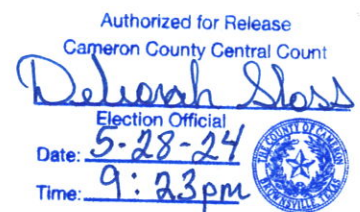 Authorized for Release
Cameron County Central Count
Deborah Sloss
Election Official
Date: 5-28-24
Time: 9:23pm
THE COUNTY OF CAMERON
BROWNSVILLE, TEXAS